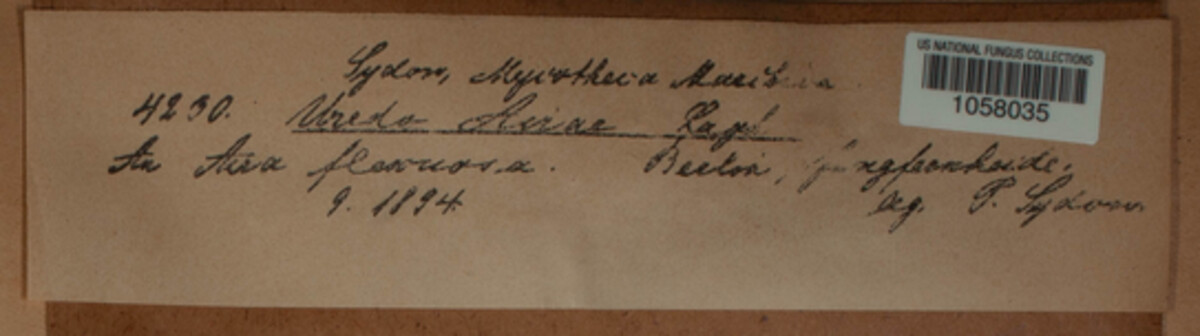 Sydow, Mycotheca Marchica
US NATIONAL FUNGUS COLLECTIONS
1058035
4230. Uredo Airae Lagh
An Aira flexuosa. Berlin, Jungfernheide.
9. 1894. leg. P. Sydow.